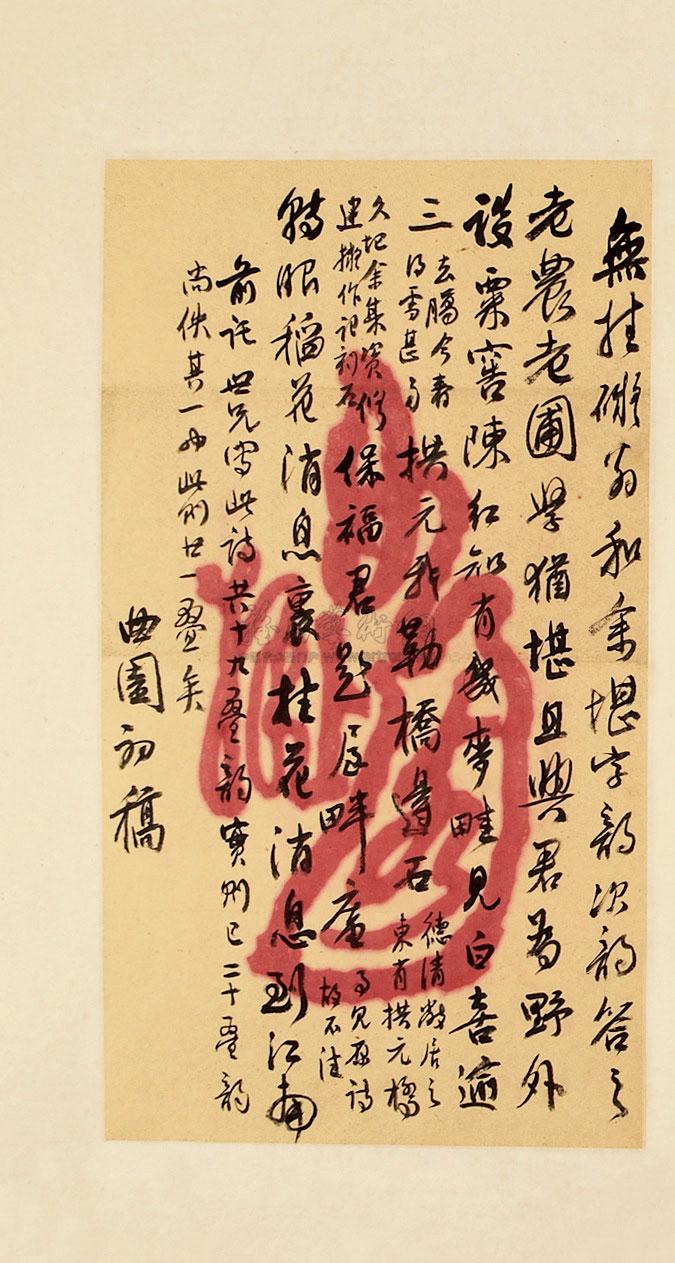 無挂礙翁和余堪字韵次韵答之
老農老圃學猶堪且與君為野外
談粟窖陳紅知有幾麥畦見白喜逾
三
去臘今春
得雪甚多
拱元我勒橋邊石
德清敝居之
東有拱元橋
久圮余集資修
建擬作記刻石
保福君題屋畔庵
事見原詩
故不注
轉眼稻花消息裏桂花消息到江南
前託世兄寫此詩共十九疊韵實則已二十疊韵
尚佚其一也此則廿一疊矣
曲園初稿